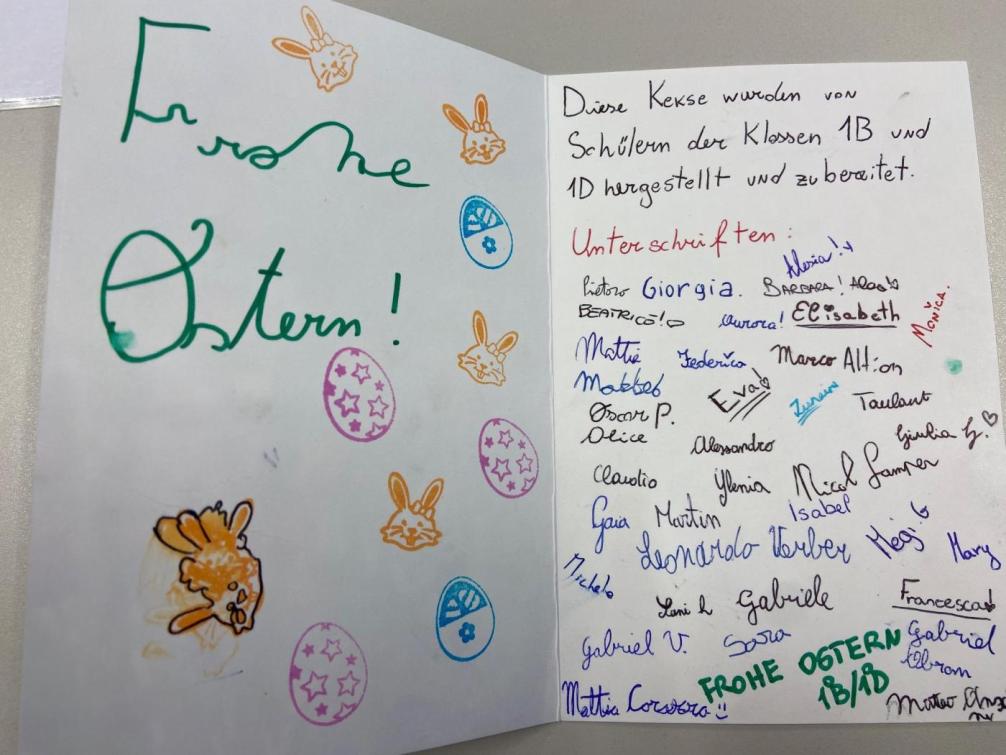 Frohe
Ostern!
Diese Kekse wurden von
Schülern der Klassen 1B und
1D hergestellt und zubereitet.
Unterschriften:
Alexia!
Pietro Giorgia. BARBARA!
BEATRICE! Aurora! Elisabeth Monica.
Mattia Federica Marco Altion
Oscar P. Eva! Zunaira Taulant
Alice Alessandro Giulia G.
Claudio Ylenia Nicol
Gaia Martin Isabel
Leonardo Verber Megi Mary
Michele
Gabriele Francesca
Gabriel V. Sara Gabriel
FROHE OSTERN
1B/1D
Mattia Matteo